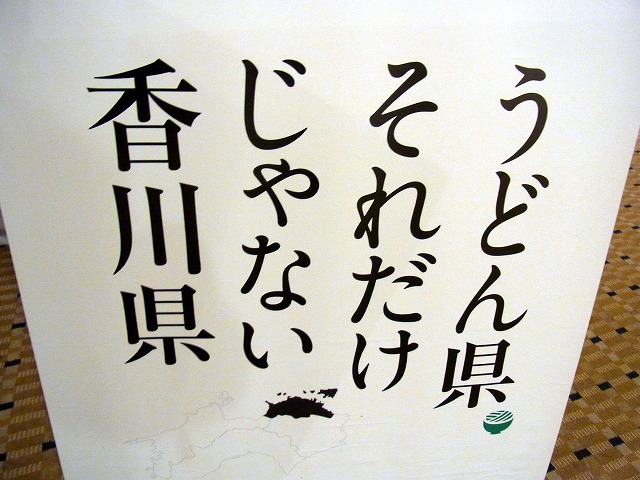 うどん県
それだけ
じゃない
香川県